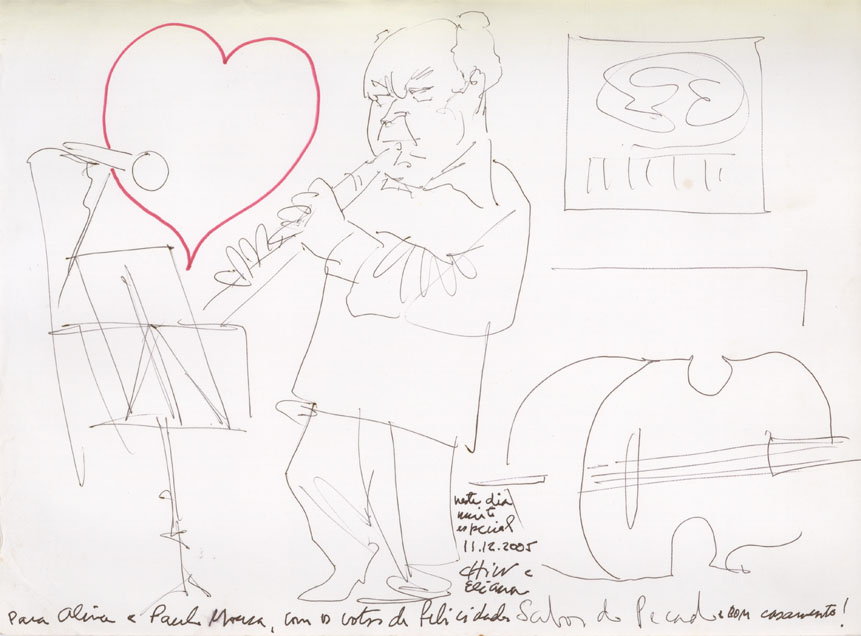 neste dia
muito
especial
11.12.2005
CHICO e
Eliana
Para Aline e Paulo Moura, com os votos de felicidades Sabor do Pecado e BOM casamento!